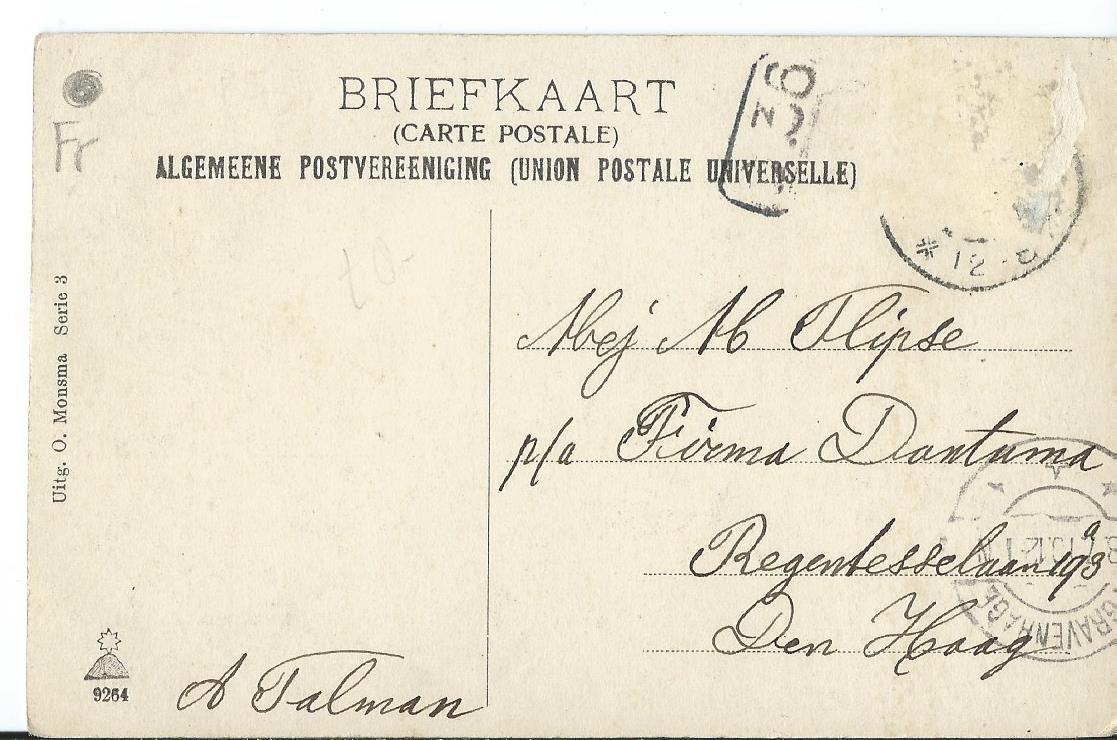 BRIEFKAART
(CARTE POSTALE)
ALGEMEENE POSTVEREENIGING (UNION POSTALE UNIVERSELLE)
Fr
Uitg. O. Monsma Serie 3
Mej M Flipse
p/a Firma Dantuma
Regentesselaan 193a
Den Haag
A Talman
9264
12
GRAVENHAGE